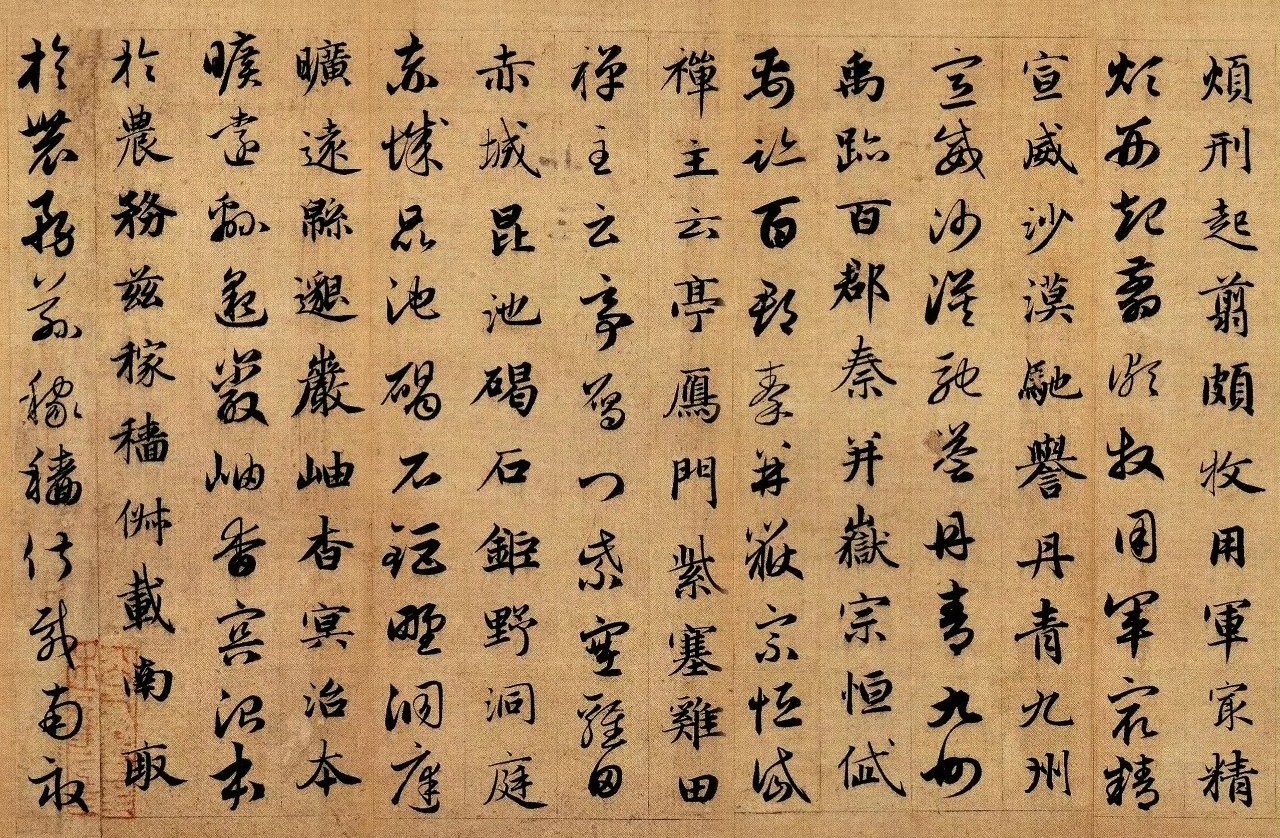 煩刑起翦頗牧用軍㝡精
煩刑起翦頗牧用軍㝡精
宣威沙漠馳譽丹青九州
宣威沙漠馳譽丹青九州
禹跡百郡秦并嶽宗恒岱
禹跡百郡秦并嶽宗恒岱
禪主云亭鴈門紫塞雞田
禪主云亭鴈門紫塞雞田
赤城昆池碣石鉅野洞庭
赤城昆池碣石鉅野洞庭
曠遠緜邈巖岫杳冥治本
曠遠緜邈巖岫杳冥治本
於農務茲稼穡俶載南畝
於農務茲稼穡俶載南畝